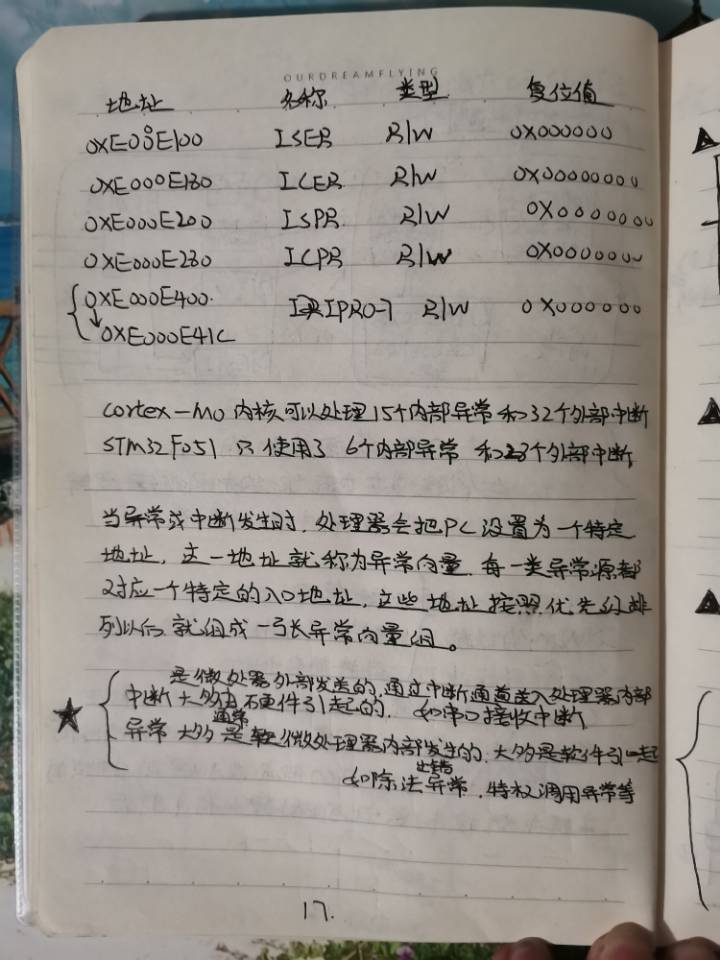 OURDREAMFLYING
地址 名称 类型 复位值
0XE000E100 ISER R/W 0X000000
0XE000E180 ICER R/W 0X0000000
0XE000E200 ISPR R/W 0X0000000
0XE000E280 ICPR R/W 0X0000000
0XE000E400 IPR0-7 R/W 0X000000
0XE000E41C
cortex-M0 内核可以处理15个内部异常和32个外部中断
STM32F051 只使用了 6个内部异常 和28个外部中断
当异常或中断发生时, 处理器会把PC设置为一个特定
地址, 这一地址就称为异常向量, 每一类异常源都
对应一个特定的入口地址, 这些地址按照优先级排
列以后就组成一张异常向量组。
是微处理器外部发送的, 通过中断通道送入处理器内部
中断 大多由硬件引起的. 如串口接收中断
通常
异常 大多是微处理器内部发生的, 大多是软件引起
出错
如除法异常, 特权调用异常等
17.